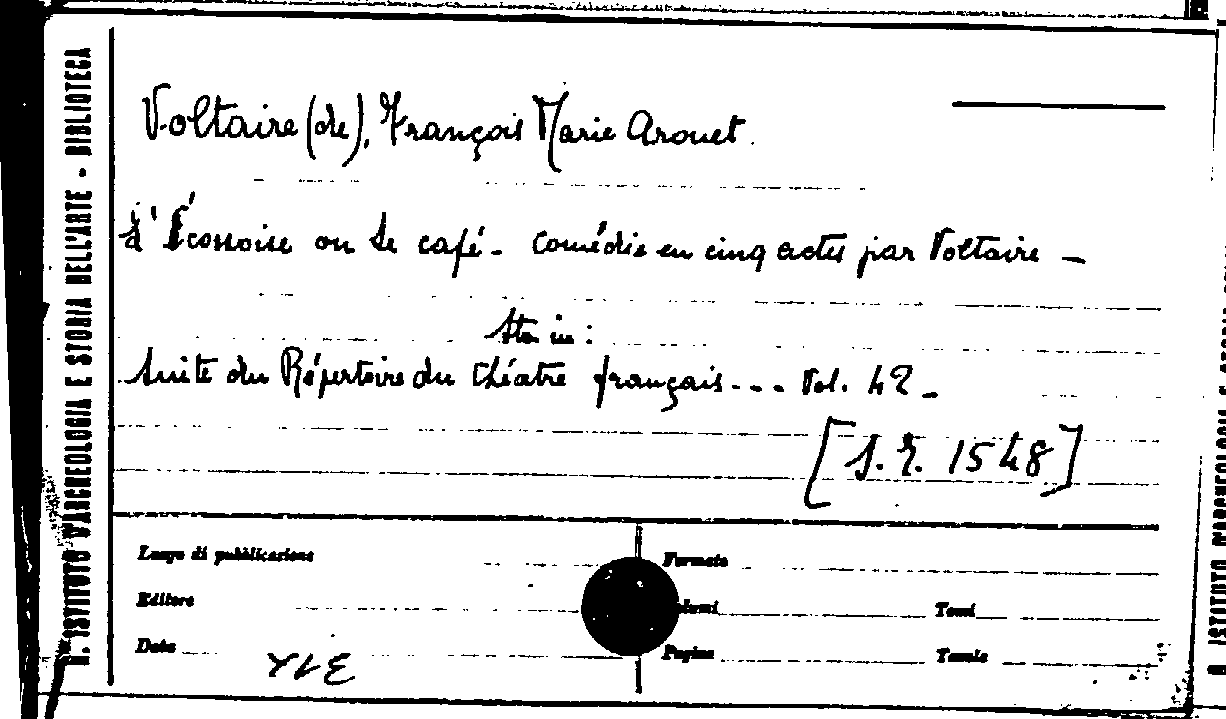 R. ISTITUTO D'ARCHEOLOGIA E STORIA DELL'ARTE - BIBLIOTECA
Voltaire (de), François Marie Arouet.
L'Écossoise ou Le café - Comédie en cinq actes par Voltaire -
Sta in:
Suite du Répertoire du théatre français - - - Vol. 42 -
[S. R. 1548]
Luogo di pubblicazione
Formato
Editore
Volumi
Tomi
Data
Pagine
Tavole